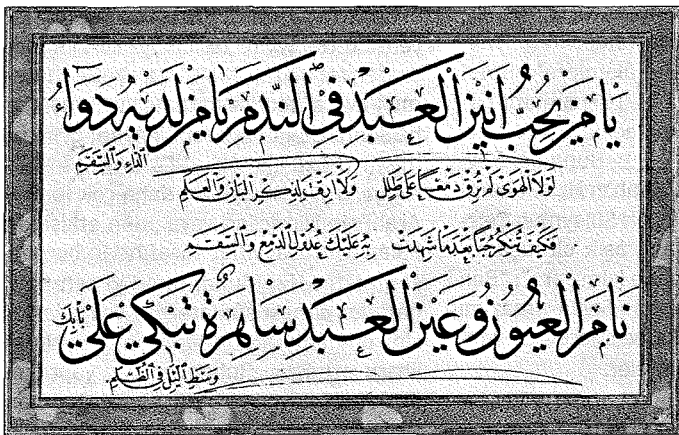 يَا مَنْ يُحِبُّ اَنِينَ الْعَبْدِ فِى النَّدَمِ يَا مَنْ لَدَيْهِ دَوَاءُ
الدَّاءِ وَالسَّقَمِ
لَوْلَا الْهَوٰى لَمْ تُرِقْ دَمْعًا عَلٰى طَلَلٍ وَلَا اَرِقْتَ لِذِكْرِ الْبَانِ وَالْعَلَمِ
فَكَيْفَ تُنْكِرُ حُبًّا بَعْدَمَا شَهِدَتْ بِهِ عَلَيْكَ عُدُولُ الدَّمْعِ وَالسَّقَمِ
نَامَ الْعُيُونُ وَعَيْنُ الْعَبْدِ سَاهِرَةٌ تَبْكِى عَلٰى بَابِكَ
وَسَطِ اللَّيْلِ فِى الظُّلَمِ